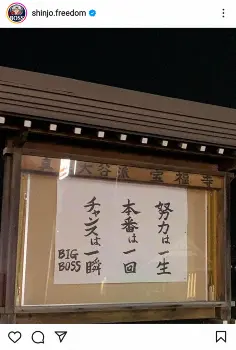 shinjo.freedom
BOSS
大谷派
努力は一生
本番は一回
チャンスは一瞬
BIG
BOSS